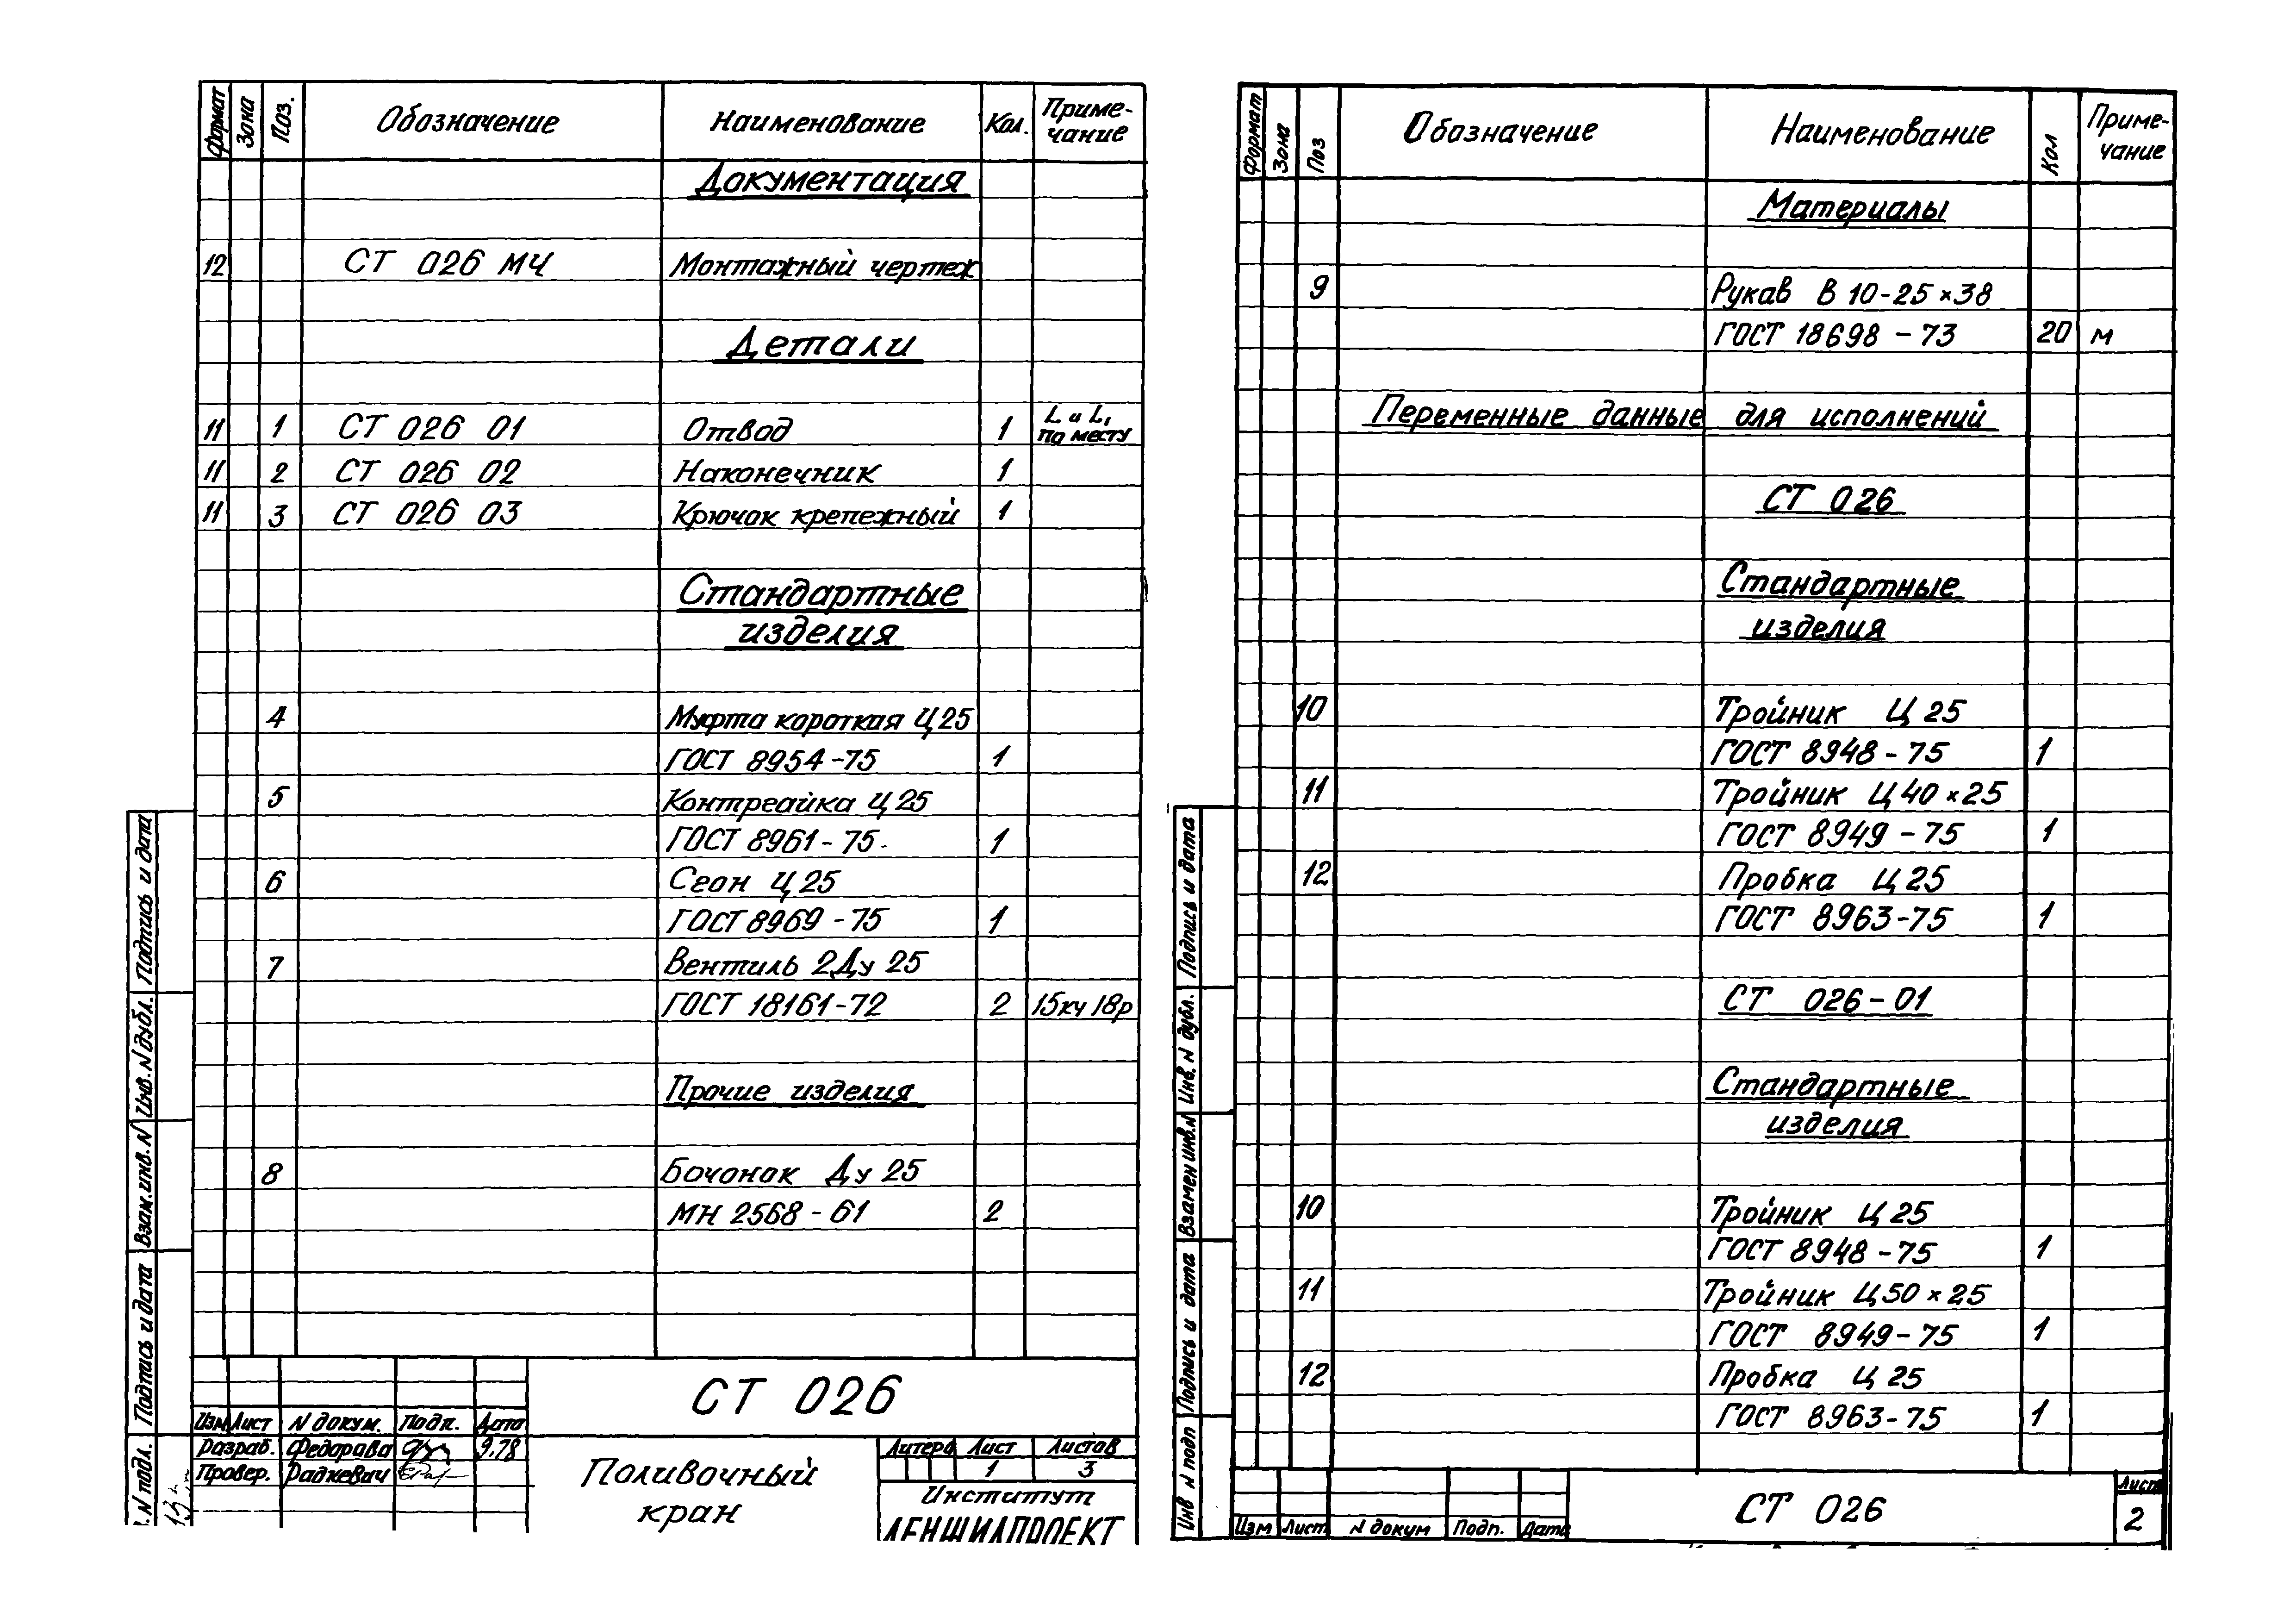 Формат Зона Поз. Обозначение Наименование Кол. Приме-
чание
Документация
12 СТ 026 МЧ Монтажный чертеж
Детали
11 1 СТ 026 01 Отвод 1 L и L₁
по месту
11 2 СТ 026 02 Наконечник 1
11 3 СТ 026 03 Крючок крепежный 1
Стандартные
изделия
4 Муфта короткая Ц 25
ГОСТ 8954-75 1
5 Контргайка Ц 25
ГОСТ 8961-75. 1
6 Сгон Ц 25
ГОСТ 8969-75 1
7 Вентиль 2Ду 25
ГОСТ 18161-72 2 15кч 18р
Прочие изделия
8 Бочонок Ду 25
МН 2568-61 2
СТ 026
Изм Лист N докум. Подп. Дата
Разраб. Федорова 9.78
Провер. Радкевич
Поливочный
кран
Литера Лист Листов
1 3
Институт
ЛЕНЖИЛПРОЕКТ
Подпись и дата
Инв. N дубл.
Взам. инв. N
Подпись и дата
N подл.
Формат Зона Поз Обозначение Наименование Кол Приме-
чание
Материалы
9 Рукав В 10-25×38
ГОСТ 18698-73 20 м
Переменные данные для исполнений
СТ 026
Стандартные
изделия
10 Тройник Ц 25
ГОСТ 8948-75 1
11 Тройник Ц 40×25
ГОСТ 8949-75 1
12 Пробка Ц 25
ГОСТ 8963-75 1
СТ 026-01
Стандартные
изделия
10 Тройник Ц 25
ГОСТ 8948-75 1
11 Тройник Ц 50×25
ГОСТ 8949-75 1
12 Пробка Ц 25
ГОСТ 8963-75 1
Изм Лист N докум Подп. Дата
СТ 026
Лист
2
Подпись и дата
Инв. N дубл.
Взамен инв. N
Подпись и дата
Инв N подп